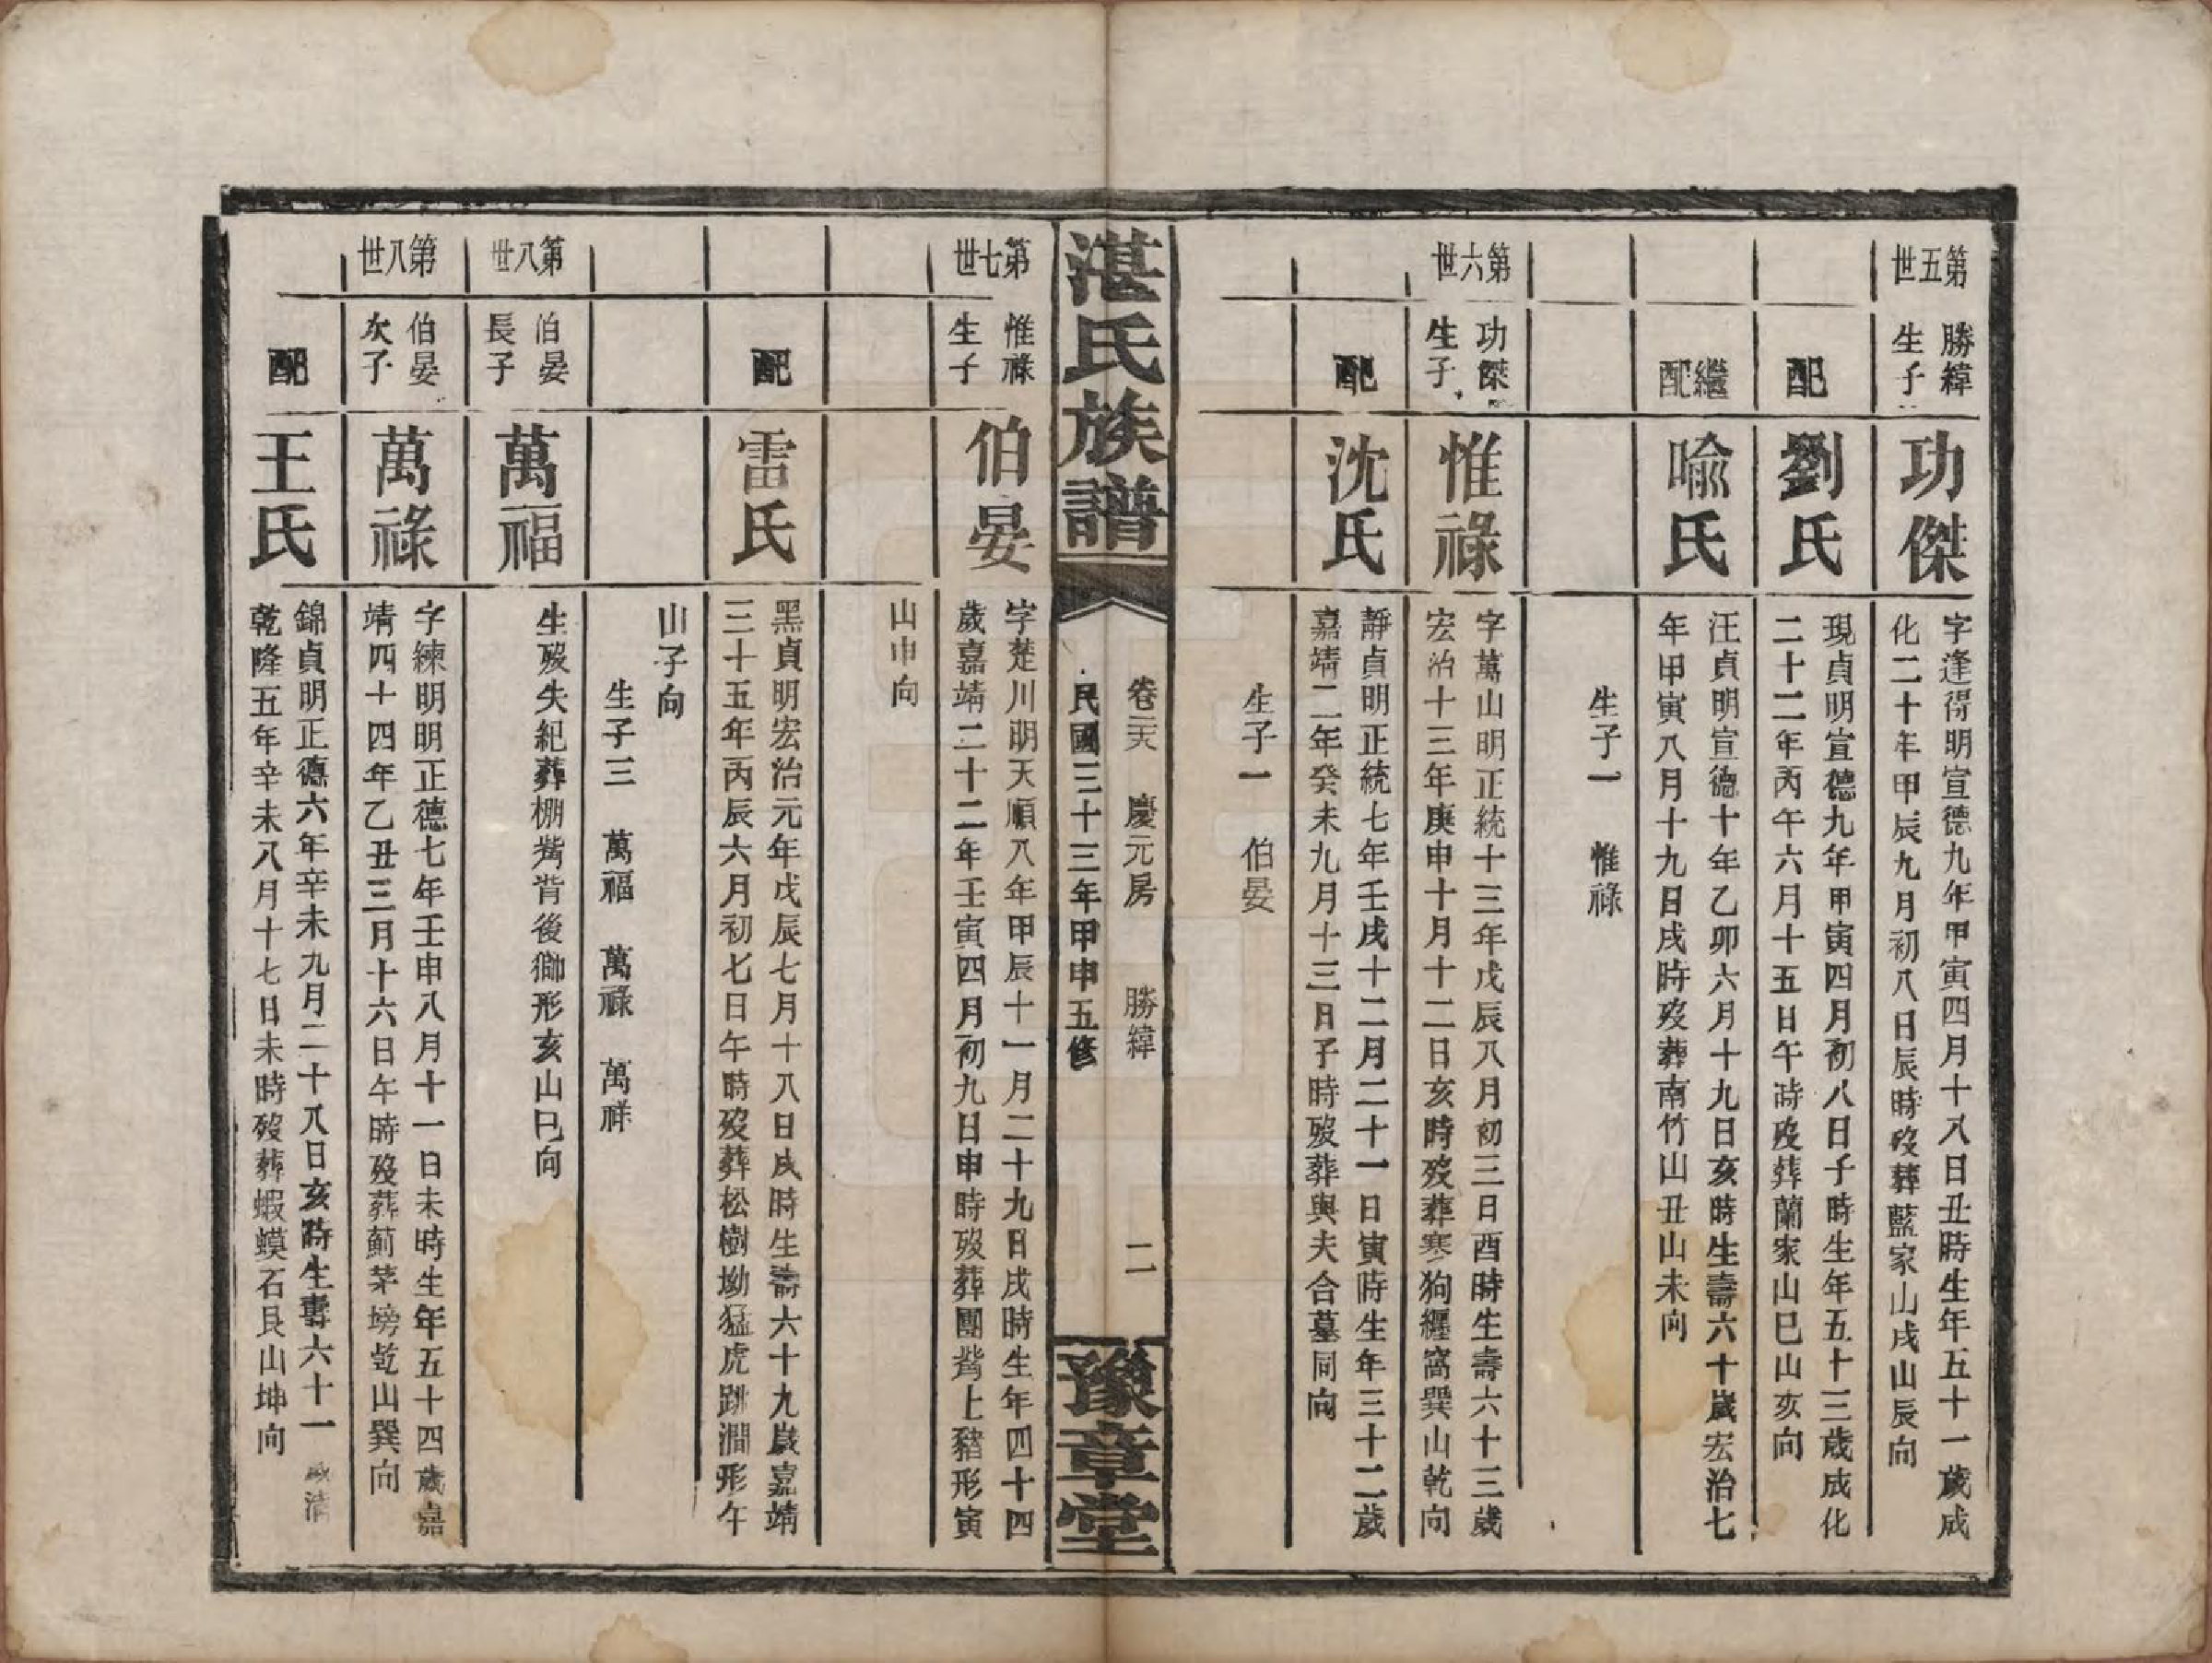 第五世
勝緯
生子
功傑
字逢得明宣德九年甲寅四月十八日丑時生年五十一歲成
化二十年甲辰九月初八日辰時歿葬藍家山戌山辰向
配
劉氏
現貞明宣德九年甲寅四月初八日子時生年五十三歲成化
二十二年丙午六月十五日午時歿葬蘭家山巳山亥向
繼配
喻氏
汪貞明宣德十年乙卯六月十九日亥時生壽六十歲宏治七
年甲寅八月十九日戌時歿葬南竹山丑山未向
生子一 惟祿
第六世
功傑
生子
惟祿
字萬山明正統十三年戊辰八月初三日酉時生壽六十三歲
宏治十三年庚申十月十二日亥時歿葬寒狗纒窩巽山乾向
配
沈氏
靜貞明正統七年壬戌十二月二十一日寅時生年三十二歲
嘉靖二年癸未九月十三日子時歿葬與夫合墓同向
生子一 伯晏
湛氏族譜
卷 慶元房 勝緯 二
民國三十三年甲申五修
豫章堂
第七世
惟祿
生子
伯晏
字楚川明天順八年甲辰十一月二十九日戌時生年四十四
歲嘉靖二十二年壬寅四月初九日申時歿葬團嘴上豬形寅
山申向
配
雷氏
黑貞明宏治元年戊辰七月十八日戌時生壽六十九歲嘉靖
三十五年丙辰六月初七日午時歿葬松樹坳猛虎跳澗形午
山子向
生子三 萬福 萬祿 萬祥
第八世
伯晏
長子
萬福
生歿失紀葬棚嘴背後獅形亥山巳向
第八世
伯晏
次子
萬祿
字練明明正德七年壬申八月十一日未時生年五十四歲嘉
靖四十四年乙丑三月十六日午時歿葬薊茅塝乾山巽向
配
王氏
錦貞明正德六年辛未九月二十八日亥時生壽六十一歲清
乾隆五年辛未八月十七日未時歿葬蝦蟆石艮山坤向